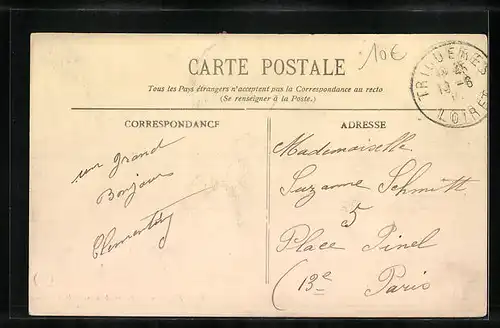 10€
CARTE POSTALE
Tous les Pays étrangers n'acceptent pas la Correspondance au recto
(Se renseigner à la Poste.)
TRIGUÈRES
LOIRET
CORRESPONDANCE
ADRESSE
un grand
Bonjour
Mademoiselle
Suzanne Schmitt
5
Place Pinel
(13e
Paris